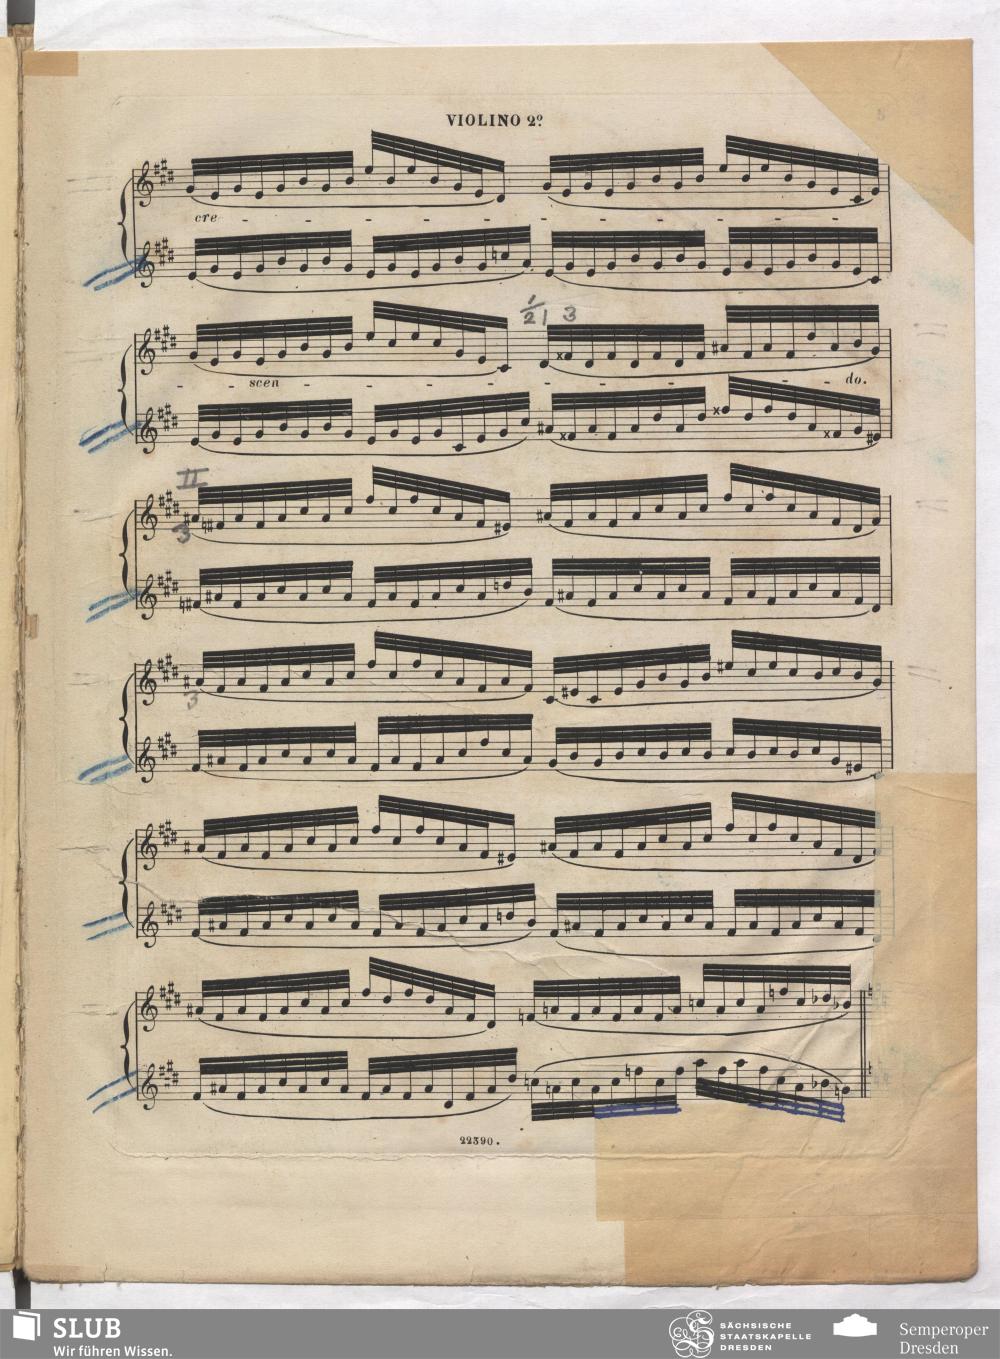 VIOLINO 2º
cre - - - - - - - - - - -
1/2 1 3
- - scen - - - - - - - - do.
II
3
3
22390.
SLUB
Wir führen Wissen.
SÄCHSISCHE
STAATSKAPELLE
DRESDEN
Semperoper
Dresden